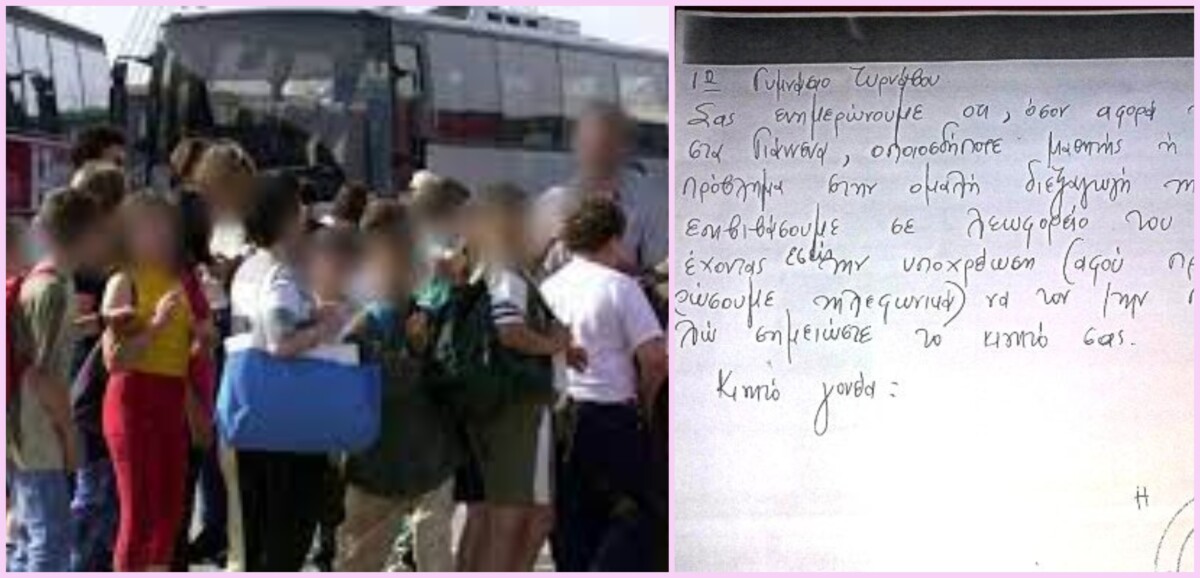 1ο Γυμνάσιο Τυρνάβου
Σας ενημερώνουμε οτι, όσον αφορά
στα Γιάννενα, οποιοσδήποτε μαθητής ή
πρόβλημα στην ομαλή διεξαγωγή τη
επιβιβάσουμε σε λεωφορείο του
έχοντας εσείς την υποχρέωση (αφού πρ
ρώσουμε τηλεφωνικά) να τον/την
λώ σημειώστε το κινητό σας.
Κινητό γονέα:
Η